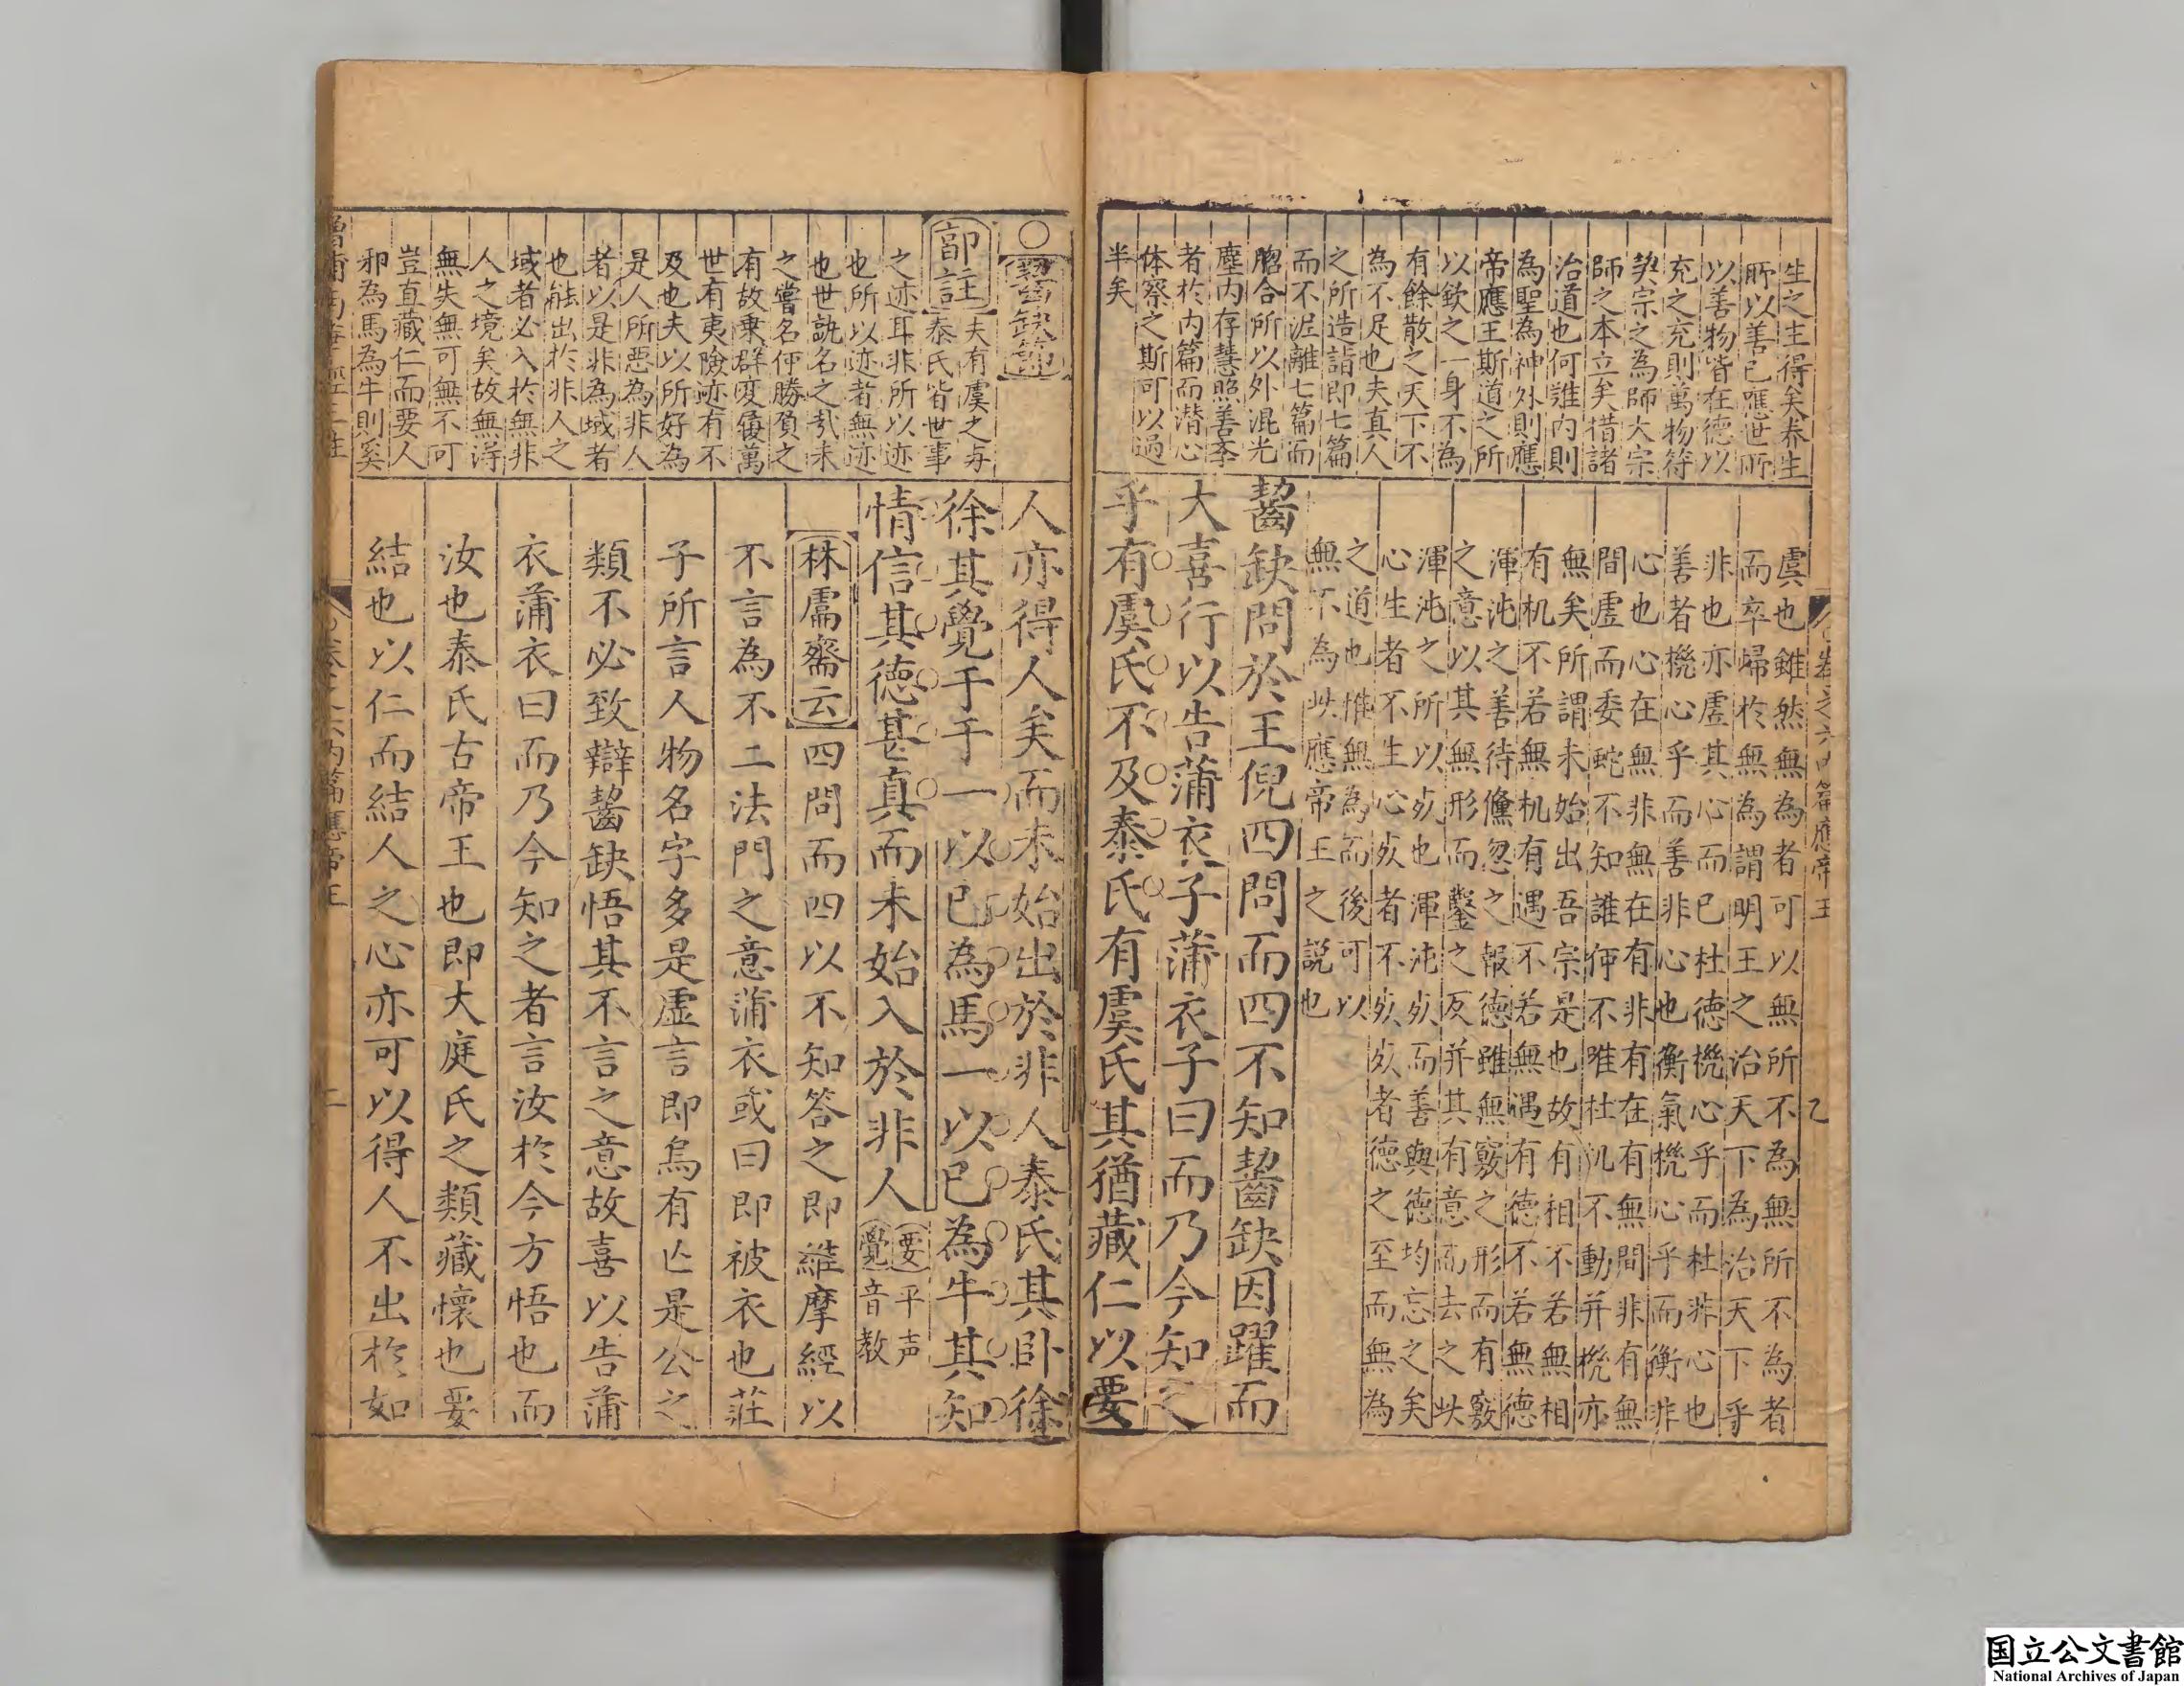 卷之六内篇應帝王
生之主得矣泰生
所以善已應世所
以善物皆在德以
充之充則萬物符
契宗之為師大宗
師之本立矣措諸
治道也何誰内則
為聖為神外則應
帝應王斯道之所
以欽之一身不為
有餘散之天下不
為不足也夫真人
之所造詣即七篇
而不泥離七篇而
脗合所以外混光
塵内存慧照善斈
者於内篇而潜心
体察之斯可以過
半矣
虞也雖然無為者可以無所不為無所不為者
而卒歸於無為謂明王之治天下為治天下乎
非也亦虛其心而已杜德機心乎而杜非心也
善者機心乎而善非心也衡氣機心乎而衡非
心也心在無非無在有非有在有無間非有無
間虛而委蛇不知誰何不唯杜机不動并機亦
無矣所謂未始出吾宗是也故有相不若無相
有机不若無机有遇不若無遇有德不若無德
渾沌之善待儵忽之報德雖無竅之形而有竅
之意以其無形而鑿之反并其有意而去之此
渾沌之所以死也渾沌死而善與德均忘之矣
心生者不生心死者不死死者德之至而無為
之道也惟無為而後可以
無不為此應帝王之説也
齧缺問於王倪四問而四不知齧缺因躍而
大喜行以告蒲衣子蒲衣子曰而乃今知之
乎有虞氏不及泰氏有虞氏其猶藏仁以要
○齧缺節
郭註 夫有虞之与
泰氏皆世事
之迹耳非所以迹
也所以迹者無迹
也世孰名之哉未
之嘗名何勝負之
有故乗群变履萬
世有夷險迹有不
及也夫以所好為
是人所惡為非人
者以是非為域者
也能出於非人之
域者必入於無非
人之境矣故無得
無失無可無不可
豈直藏仁而要人
邪為馬為牛則奚
人亦得人矣而未始出於非人泰氏其卧徐
徐其覺于于一以已為馬一以已為牛其知
情信其德甚真而未始入於非人 要平声 覺音教
林鬳齋云 四問而四以不知答之即維摩經以
不言為不二法門之意蒲衣或曰即被衣也莊
子所言人物名字多是虛言即烏有亡是公之
類不必致辯齧缺悟其不言之意故喜以告蒲
衣蒲衣曰而乃今知之者言汝於今方悟也而
汝也泰氏古帝王也即大庭氏之類藏懷也要
結也以仁而結人之心亦可以得人不出於如
卷之六内篇應帝王 二
国立公文書館
National Archives of Japan